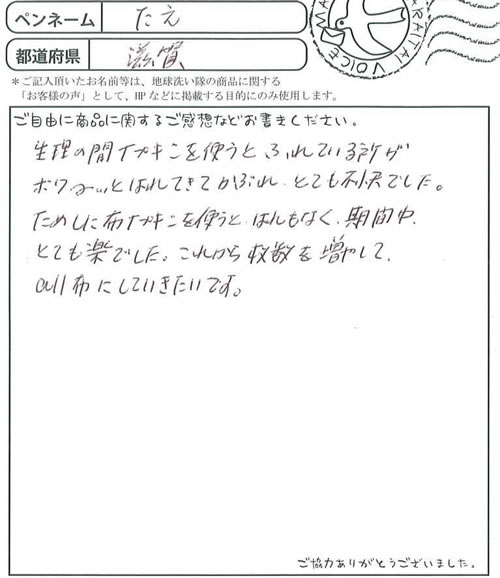 ペンネーム たえ
都道府県 滋賀
＊ご記入頂いたお名前等は、地球洗い隊の商品に関する
「お客様の声」として、HPなどに掲載する目的にのみ使用します。
ARAITAI VOICE
ご自由に商品に関するご感想などお書きください。
生理の間イプキンを使うと ふれている所が
ボワァーッとはれてきてかぶれ、とても不快でした。
ためしに布イプキンを使うと、はんもなく、期間中、
とても楽でした。これから枚数を増やして、
all布にしていきたいです。
ご協力ありがとうございました。